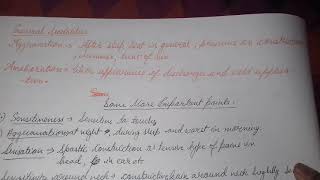 General Modalities
Aggravation :- After sleep, heat in general, pressure or constriction,
summer, heat of sun
Amelioration :- With appearance of discharges and cold applica-
tion.
Some More Important points.
Sensitiveness → Sensitive to touch
Aggravation at night, during sleep and worst in morning.
Sensation → constriction as tensive type of pains in
head,
around neck → constric around neck